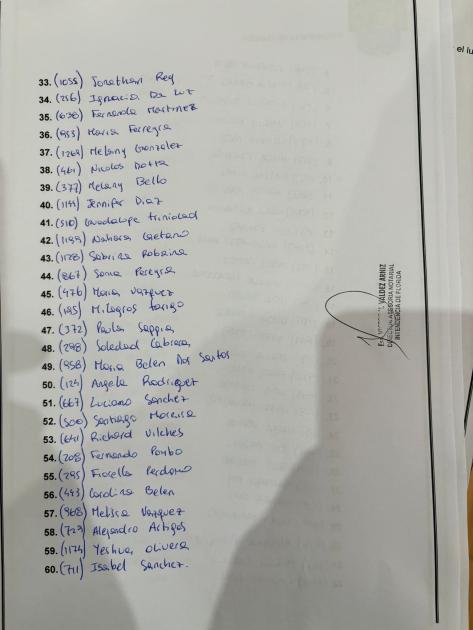 33. (1055) Jonathan Rey
34. (256) Ignacia De Luz
35. (638) Fernanda Martinez
36. (953) Maria Ferreyra
37. (1269) Melany Gonzalez
38. (461) Nicolas Dotta
39. (377) Melany Bello
40. (1144) Jennifer Diaz
41. (510) Guadalupe trinidad
42. (1199) Nahiara Caetano
43. (1128) Sabrina Robaina
44. (867) Sonia Pereyra
45. (476) Maria Vazquez
46. (185) Milagros
47. (372) Paula Sappia
48. (298) Soledad Cabrera
49. (958) Maria Belen Dos Santos
50. (124) Angela Rodriguez
51. (667) Luciano Sanchez
52. (500) Santiago Moreira
53. (641) Richard Vilches
54. (208) Fernando Pombo
55. (295) Fiorella Perdomo
56. (443) Carolina Belen
57. (968) Melissa Vazquez
58. (723) Alejandro Artigas
59. (1174) Yeshua Olivera
60. (711) Isabel Sanchez.
el lu
VALDEZ ARNIZ
DIRECCION ASESORIA NOTARIAL
INTENDENCIA DE FLORIDA